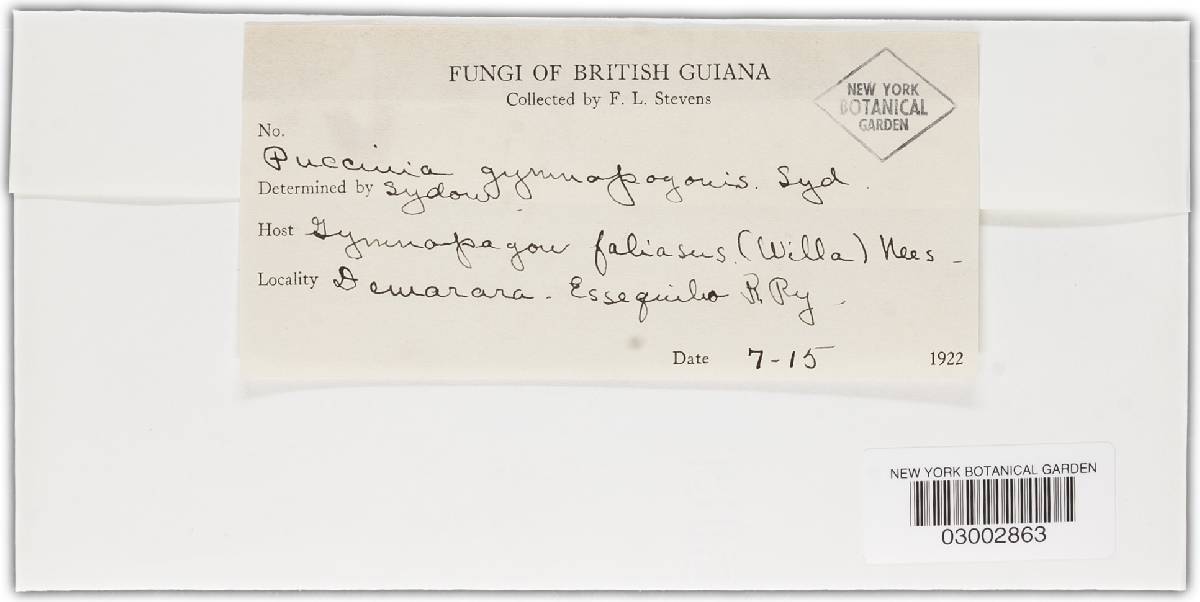 FUNGI OF BRITISH GUIANA
Collected by F. L. Stevens
NEW YORK
BOTANICAL
GARDEN
No.
Puccinia gymnopogonis. Syd.
Determined by Sydow
Host Gymnopogon foliosus. (Willd) Nees -
Locality Demarara - Essequibo R Ry.
Date 7-15 1922
NEW YORK BOTANICAL GARDEN
03002863